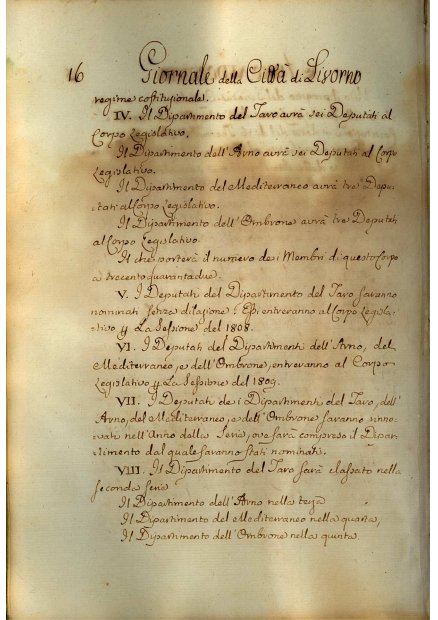 16 Giornale della Città di Livorno
regime costituzionale.
IV. Il Dipartimento del Taro avrà sei Deputati al
Corpo Legislativo.
Il Dipartimento dell'Arno avrà sei Deputati al Corpo
Legislativo.
Il Dipartimento del Mediterraneo avrà tre Depu-
tati al Corpo Legislativo.
Il Dipartimento dell'Ombrone avrà tre Deputati
al Corpo Legislativo
Il che porterà il numero dei Membri di questo Corpo
a trecento quarantadue.
V. I Deputati del Dipartimento del Taro saranno
nominati senza dilazione: Essi entreranno al Corpo Legisla-
tivo p la Sessione del 1808.
VI. I Deputati del Dipartimenti dell'Arno, del
Mediterraneo, e dell'Ombrone, entreranno al Corpo
Legislativo p La Sessione del 1809.
VII. I Deputati de i Dipartimenti del Taro, dell'
Arno, del Mediterraneo, e dell'Ombrone saranno rinno-
vati nell'Anno della Serie, ove sarà compreso il Dipar-
timento dal quale saranno stati nominati.
VIII. Il Dipartimento del Taro sarà classato nella
seconda serie
Il Dipartimento dell'Arno nella terza
Il Dipartimento del Mediterraneo nella quarta,
Il Dipartimento dell'Ombrone nella quinta.